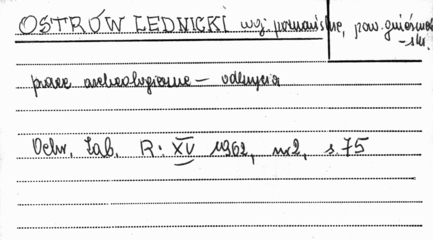 OSTRÓW LEDNICKI woj. poznańskie, pow. gnieźnień-
-ski.
prace archeologiczne – odkrycia
Ochr. Zab. R. XV 1962, nr 2, s. 75